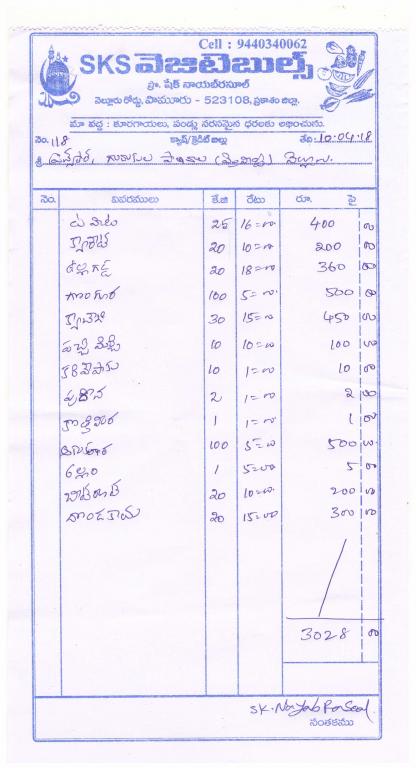 Cell : 9440340062
SKS వెజిటెబుల్స్
ప్రొ. షేక్ నాయబ్‌రసూల్
నెల్లూరు రోడ్డు, పామూరు - 523108, ప్రకాశం జిల్లా.
మా వద్ద : కూరగాయలు, పండ్లు సరసమైన ధరలకు లభించును.
నెం. 118 క్యాష్/క్రెడిట్ బిల్లు తేది: 10.04.18
శ్రీ గురుకుల
నెం. వివరములు కే.జి రేటు రూ. పై
టమాటు 25 16=00 400 00
క్యారెట్ 20 10=00 200 00
ఉల్లగడ్డ 20 18=00 360 00
గోంగూర 100 5=00 500 00
క్యాబేజి 30 15=00 450 00
పచ్చి మిర్చి 10 10=00 100 00
కరివేపాకు 10 1=00 10 00
పుదీన 2 1=00 2 00
కొత్తిమీర 1 1=00 1 00
100 5=00 500 00
అల్లం 1 5=00 5 00
20 10=00 200 00
దొండకాయ 20 15=00 300 00
3028 00
SK.
సంతకము